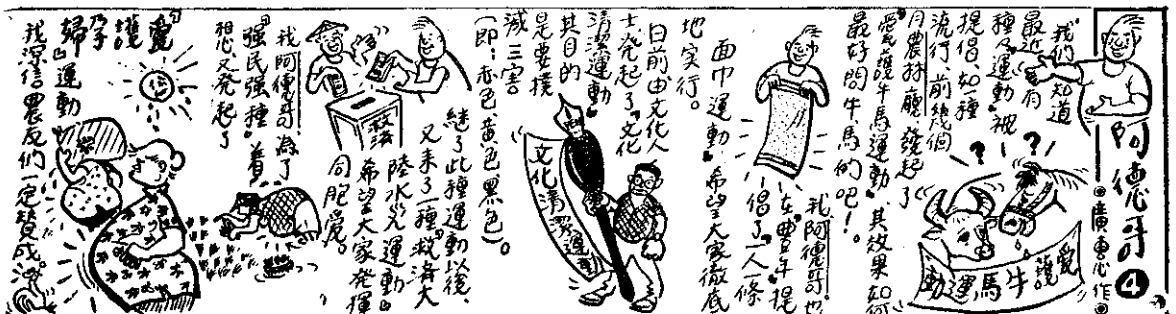 阿德哥 4
廣惠心作
我們知道
最近有
種々運動被
提倡、如一種
流行、前幾個
月農林廳發起了
愛護牛馬運動、其效果如何
最好問牛馬的吧！
? ? ?
愛護牛馬運動
我阿德哥也
在豐年提
倡了「一人一條
面巾運動」希望大家徹底
地实行。
日前由文化人
士発起了「文化
清潔運動」
其目的
是要撲
滅三害
(即：赤色、黃色、黑色)。
文化清潔運
繼了此種運動以後、
又来了一種「救濟大
陸水災運動」
希望大家発揮
同胞愛。
救濟
我阿德哥為了
「強民強種」着
想又発起了
「愛護孕
婦」運動
我深信農友們一定赞成。